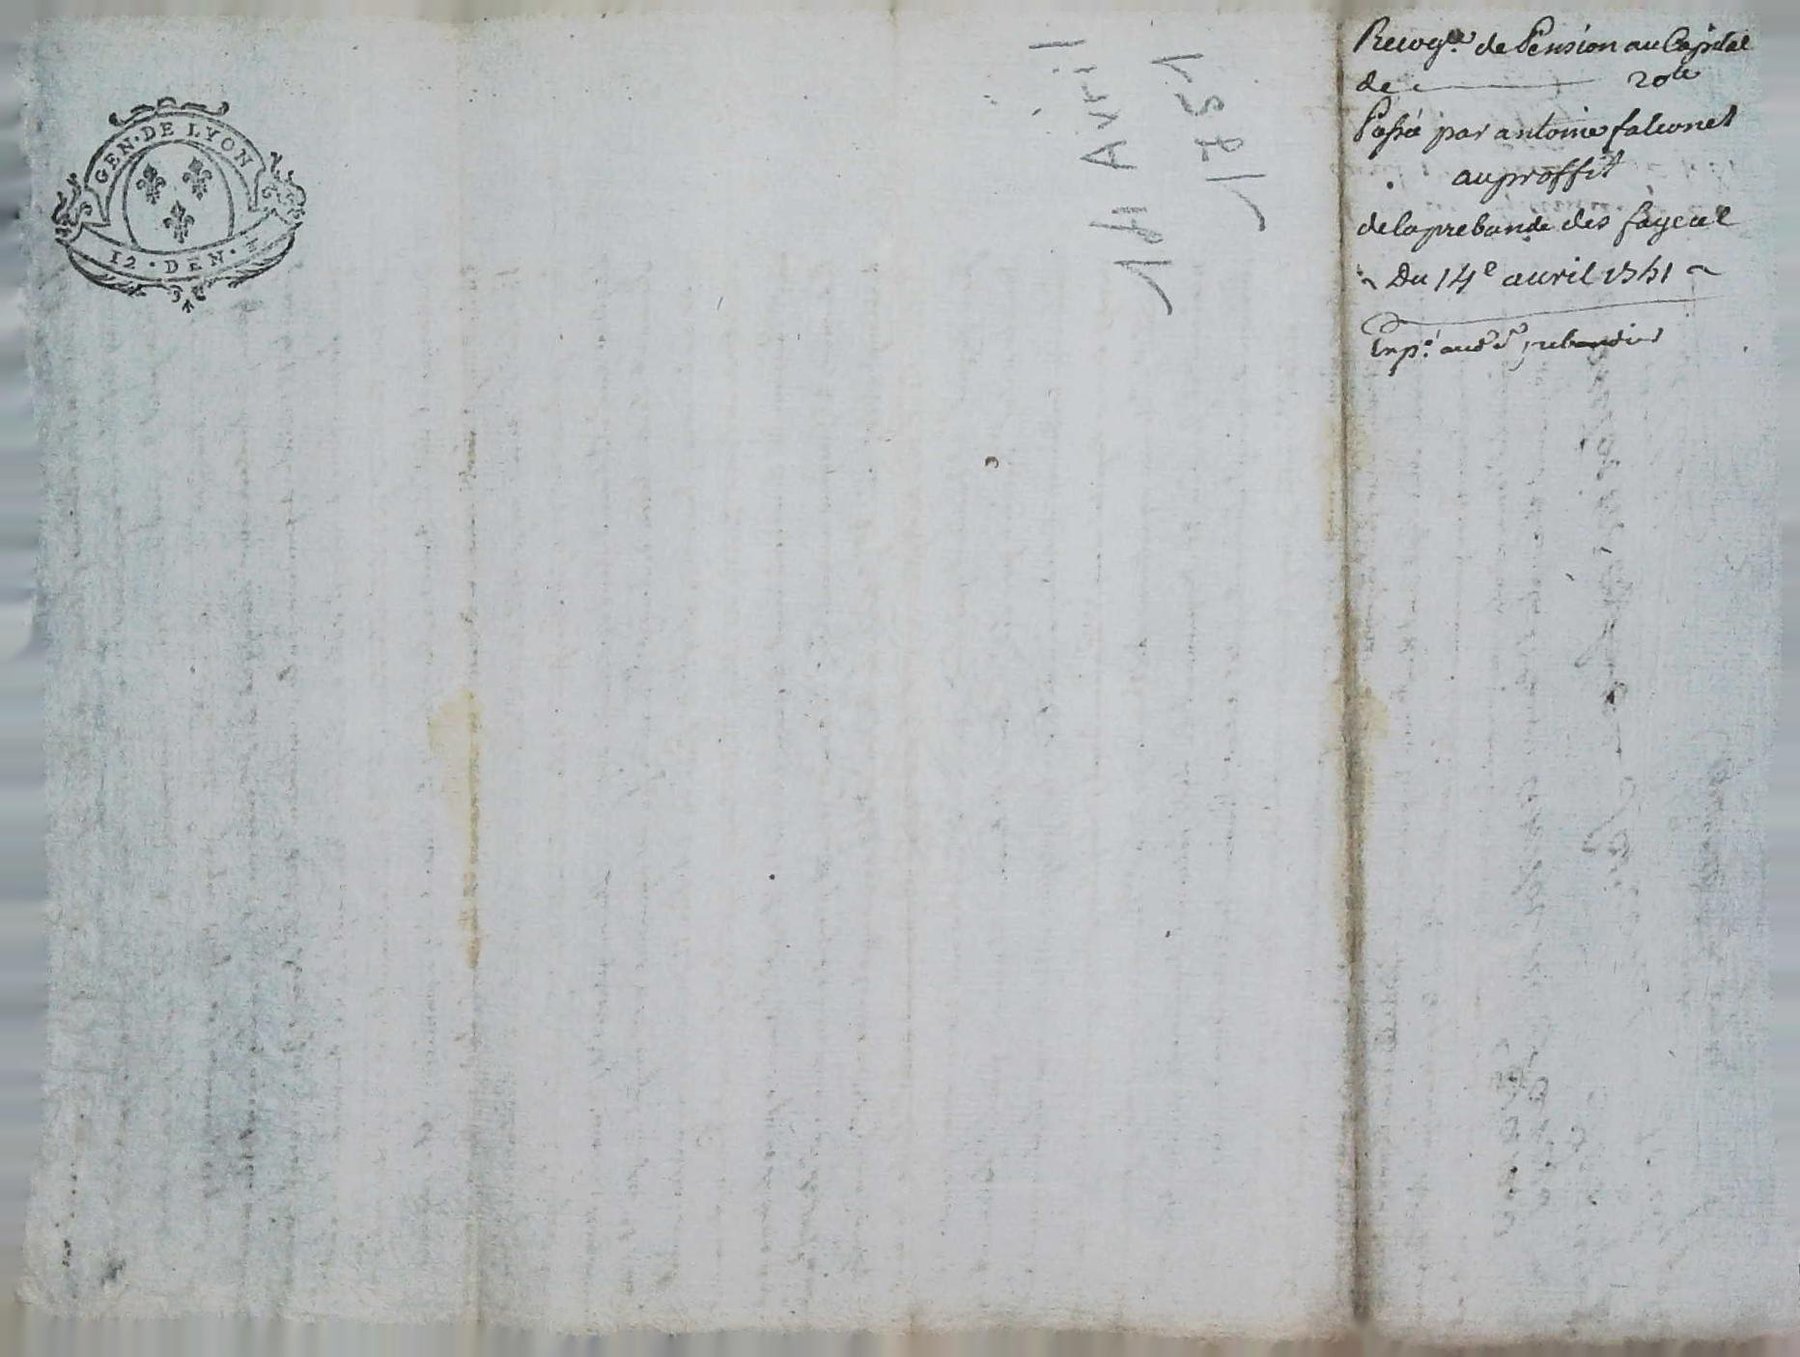 GEN·DE LYON
12·DEN·
14 Avril
1751
Recog.ce de Pension au Capital
de 20lt
Passé par antoine falconet
au proffit
de la prebande des fageal
Du 14e avril 1751
Exp.é aud. S.r prebandier